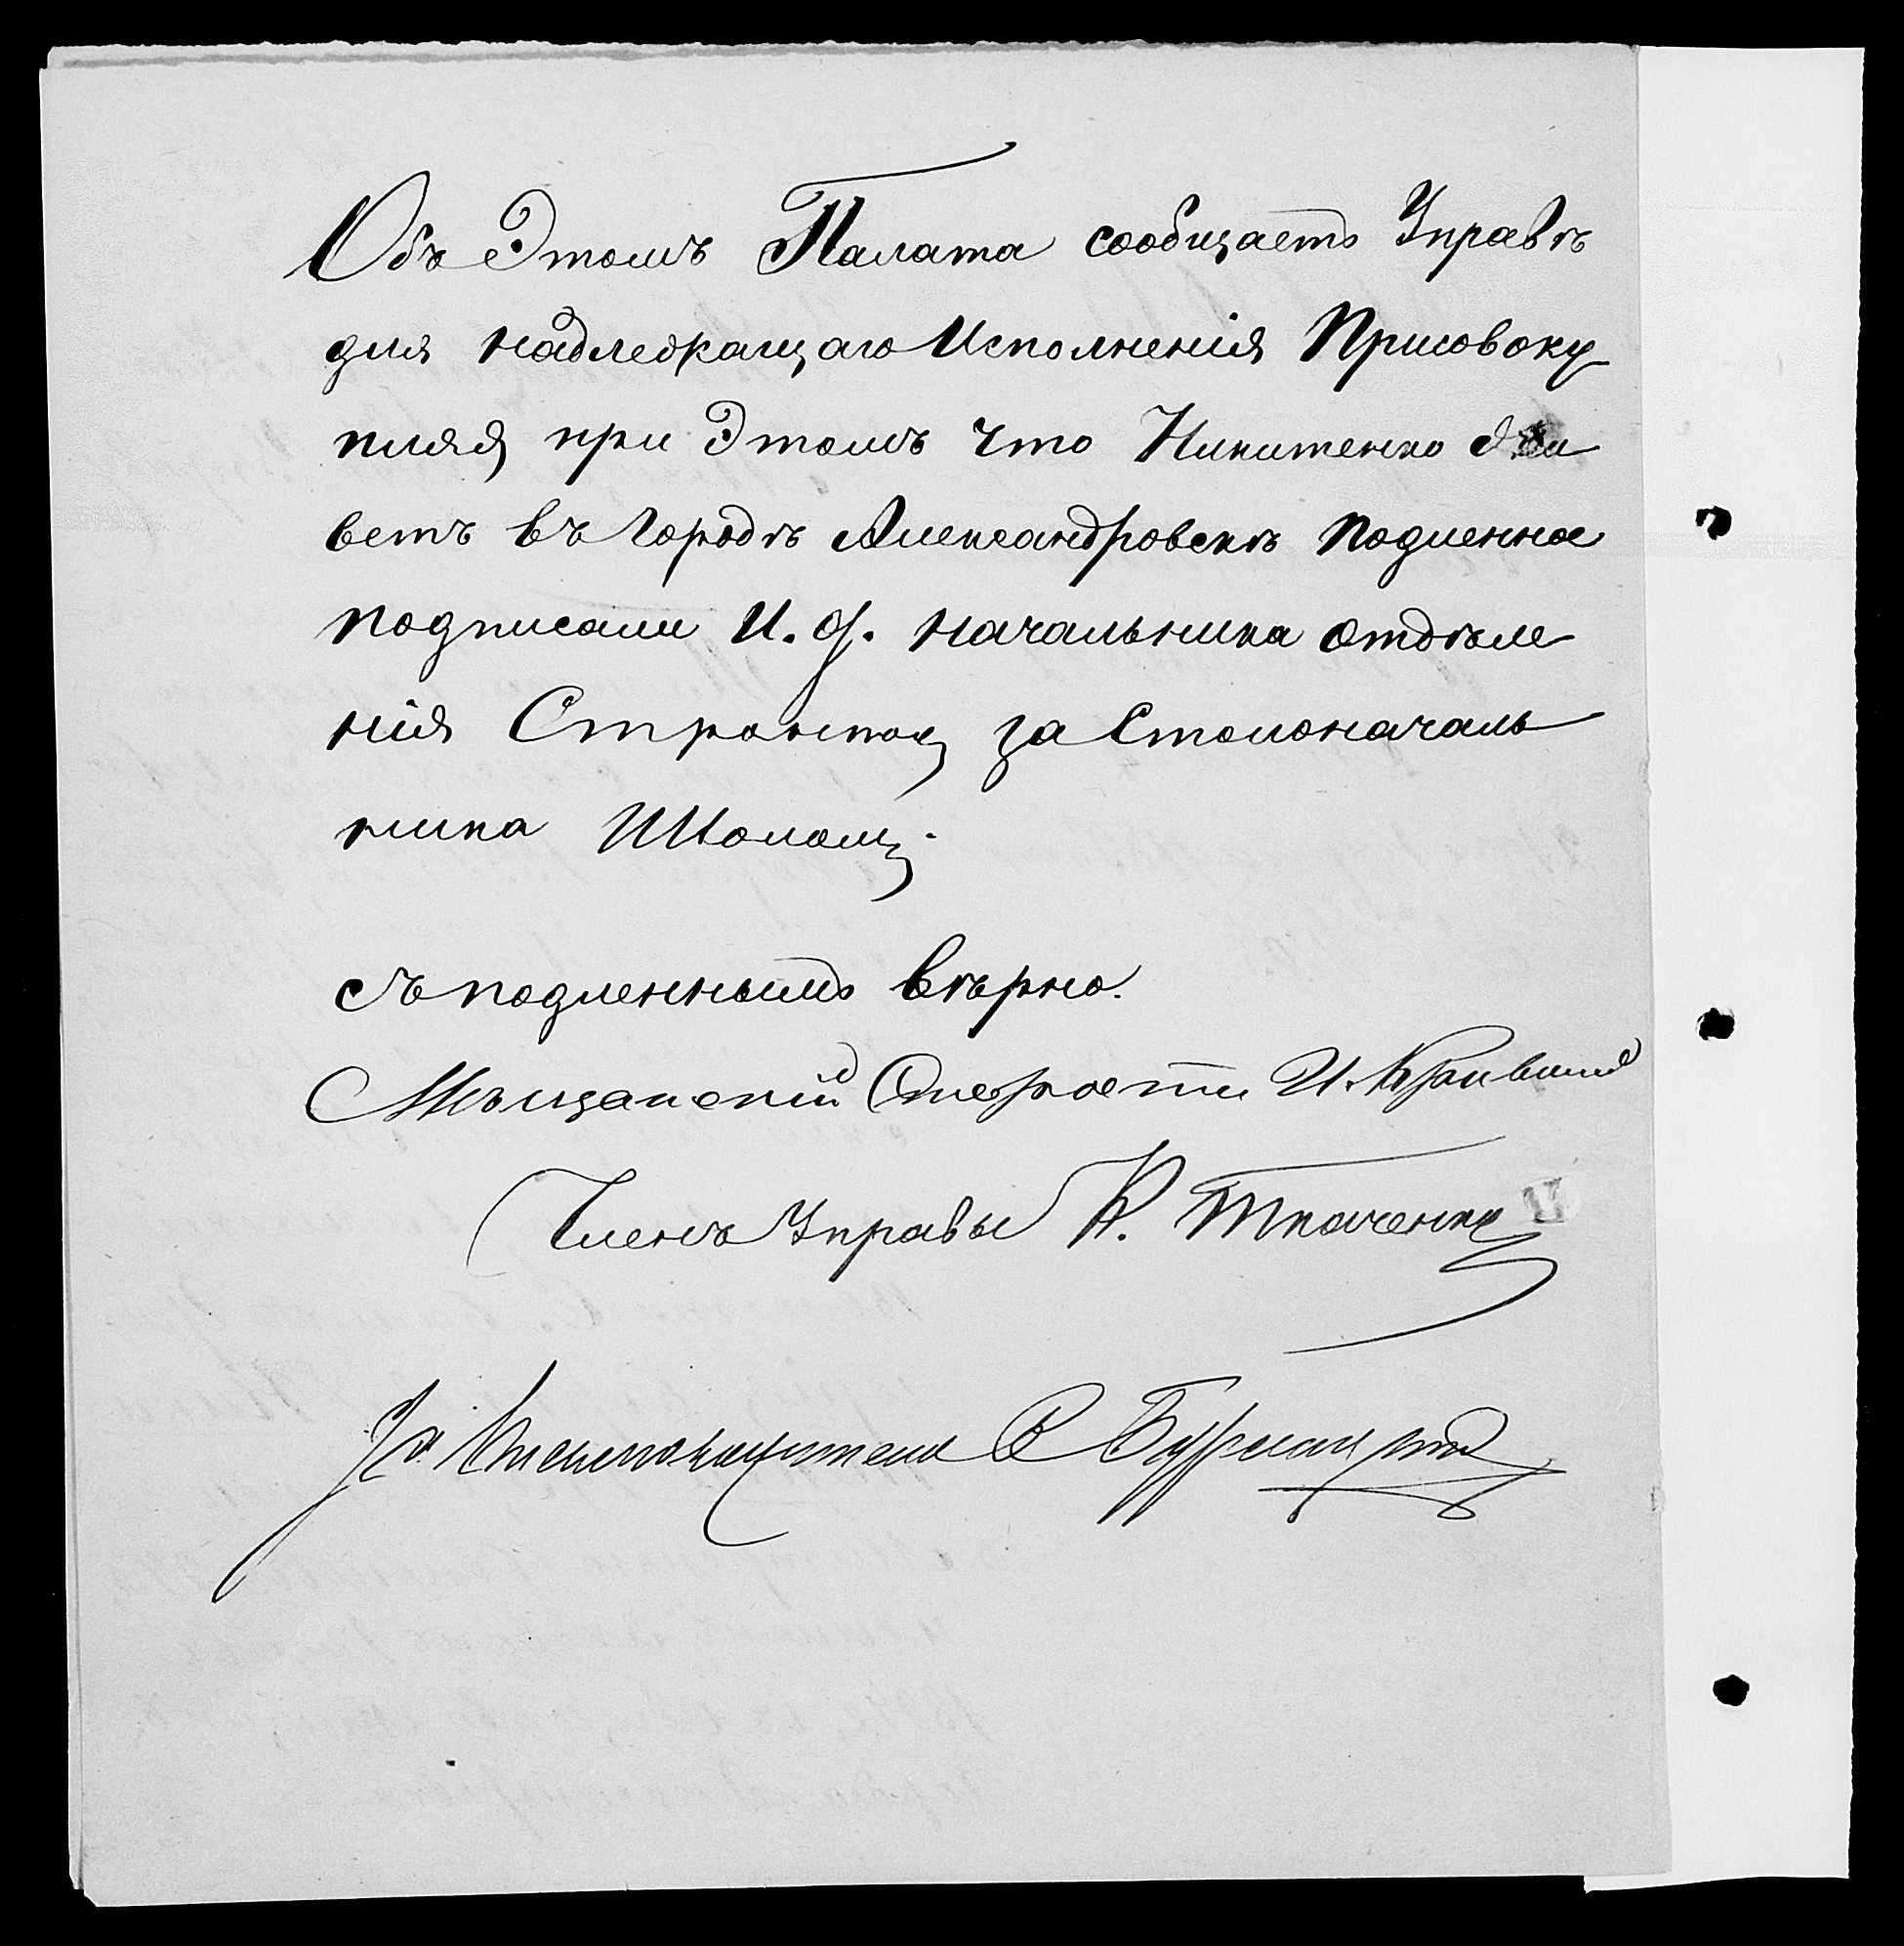 Объ Этомъ Палата сообщаетъ Управѣ
для надлежащаго Исполненія Присовоку
пляя при Этомъ что Никитенко жи
ветъ въ Городѣ Александровскѣ подленное
подписали И. Ф. начальника отдѣле
нія за Столоначаль
ника
съ подленнымъ вѣрно.
Мѣщанскій Староста И.
Членъ Управы К. Ткаченко
За Письмоводителя В